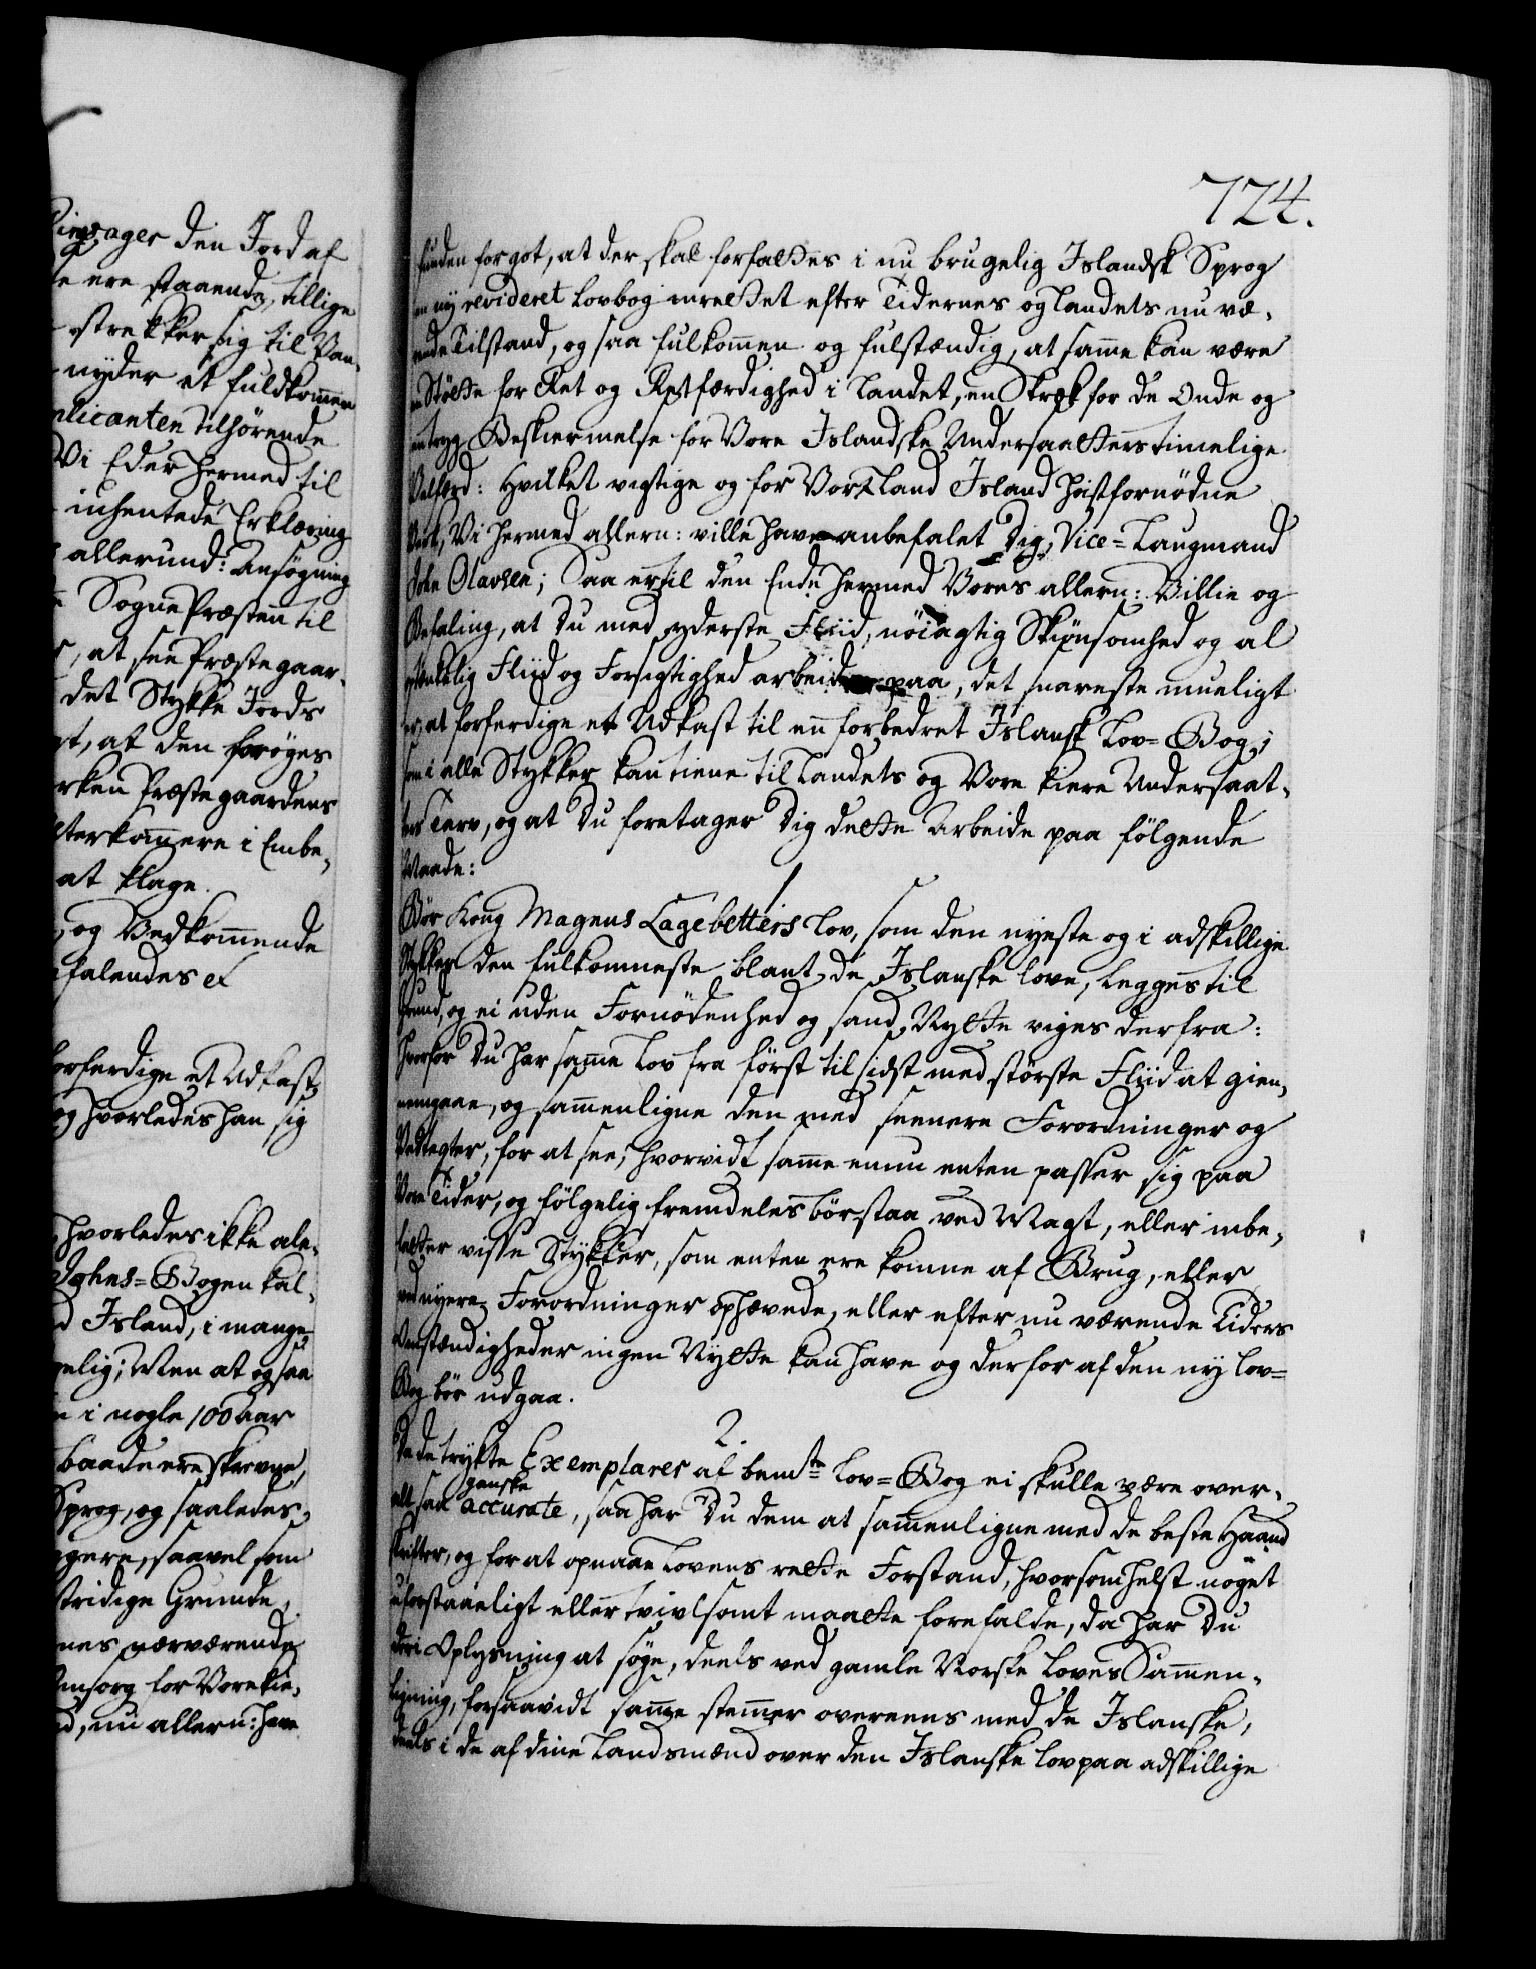 ager den Jord af
ere staaende, tillige
strekker sig til Van-
nyder et fuldkommen
licanten tilhørende
Vi Eder hermed til
inhentede Erklæring
allerund: Ansøgning
Sogne Præsten til
, at see Præstegaar-
det Stykke Jords
at den forøyes
Præstegaardens
terkommere i Embe-
at klage.
og Vedkommende
falendes etc
forferdige et Udkast
og hvorledes han sig
hvorledes ikke ale-
Johns-Bogen kal-
d Island, i mange
gelig; Men at ogsaa
i nogle 100 Aar
baade ere skrevne
Sprog, og saaledes
gere, saavel som
stridige Grunde,
nes nærværende
Omsorg for Vore kie-
d, nu allern: have
724.
funden for got, at der skal forfattes i nu brugelig Islandsk Sprog
en ny revideret Lovbog inrettet efter Tidernes og Landets nu væ-
rende Tilstand, og saa fulkommen og fulstændig, at samme kan være
en Støtte for Ret og Retfærdighed i Landet, en Skræk for de Onde og
en tryg Beskiermelse for Vore Islandske Undersaatters timelige
Velferd: Hvilket vigtige og for Vort Land Island høistfornødne
Verk, Vi hermed allern: ville have anbefalet Dig, Vice-Laugmand
John Olavsen; Saa er til den Ende hermed Vores allern: Villie og
Befaling, at Du med yderste Fliid, nöiagtig Skiønsomhed og al
optænkelig Fliid og Forsigtighed arbeider paa, det snareste mueligt
er, at forferdige et Udkast til en forbedret Islansk Lov-Bog,
som i alle Stykker kan tiene til Landets og Vore kiere Undersaat-
ters Tarv, og at Du foretager Dig dette Arbeide paa følgende
Maade:
1
Bør Kong Magnus Lagebetters Lov, som den nyeste og i adskillige
Stykker den fulkomneste blant de Islanske Love, legges til
Grund, og ei uden Fornødenhed og sand Nytte viges derfra:
Hvorfor Du har samme Lov fra först til sidst med störste Fliid at gien-
nemgaae, og sammenligne den med seenere Forordninger og
Vedtegter, for at see, hvorvidt samme ennu enten passer sig paa
Vore Tider, og fölgelig fremdeles bör staa ved Magt, eller inbe-
fatter visse Stykker, som enten ere komne af Brug, eller
ved nyere Forordninger ophævede, eller efter nu værende Tiders
Omstændigheder ingen Nytte kan have og derfor af den ny Lov-
Bog bör udgaa.
2.
Da de trykte Exemplarer af bemte Lov-Bog ei skulle være over-
alt saa ganske accurate, saa har Du dem at sammenligne med de beste Haand
skrifter, og for at opnaae Lovens rette Forstand, hvorsomhelst noget
uforstaaeligt eller tvivlsomt maatte forefalde, da har Du
deri Oplysning at søge, deels ved gamle Norske Loves Sammen-
ligning, forsaavidt samme stemmer overeens med de Islanske,
deels i de af dine Landsmænd over den Islanske Lov paa adskillige